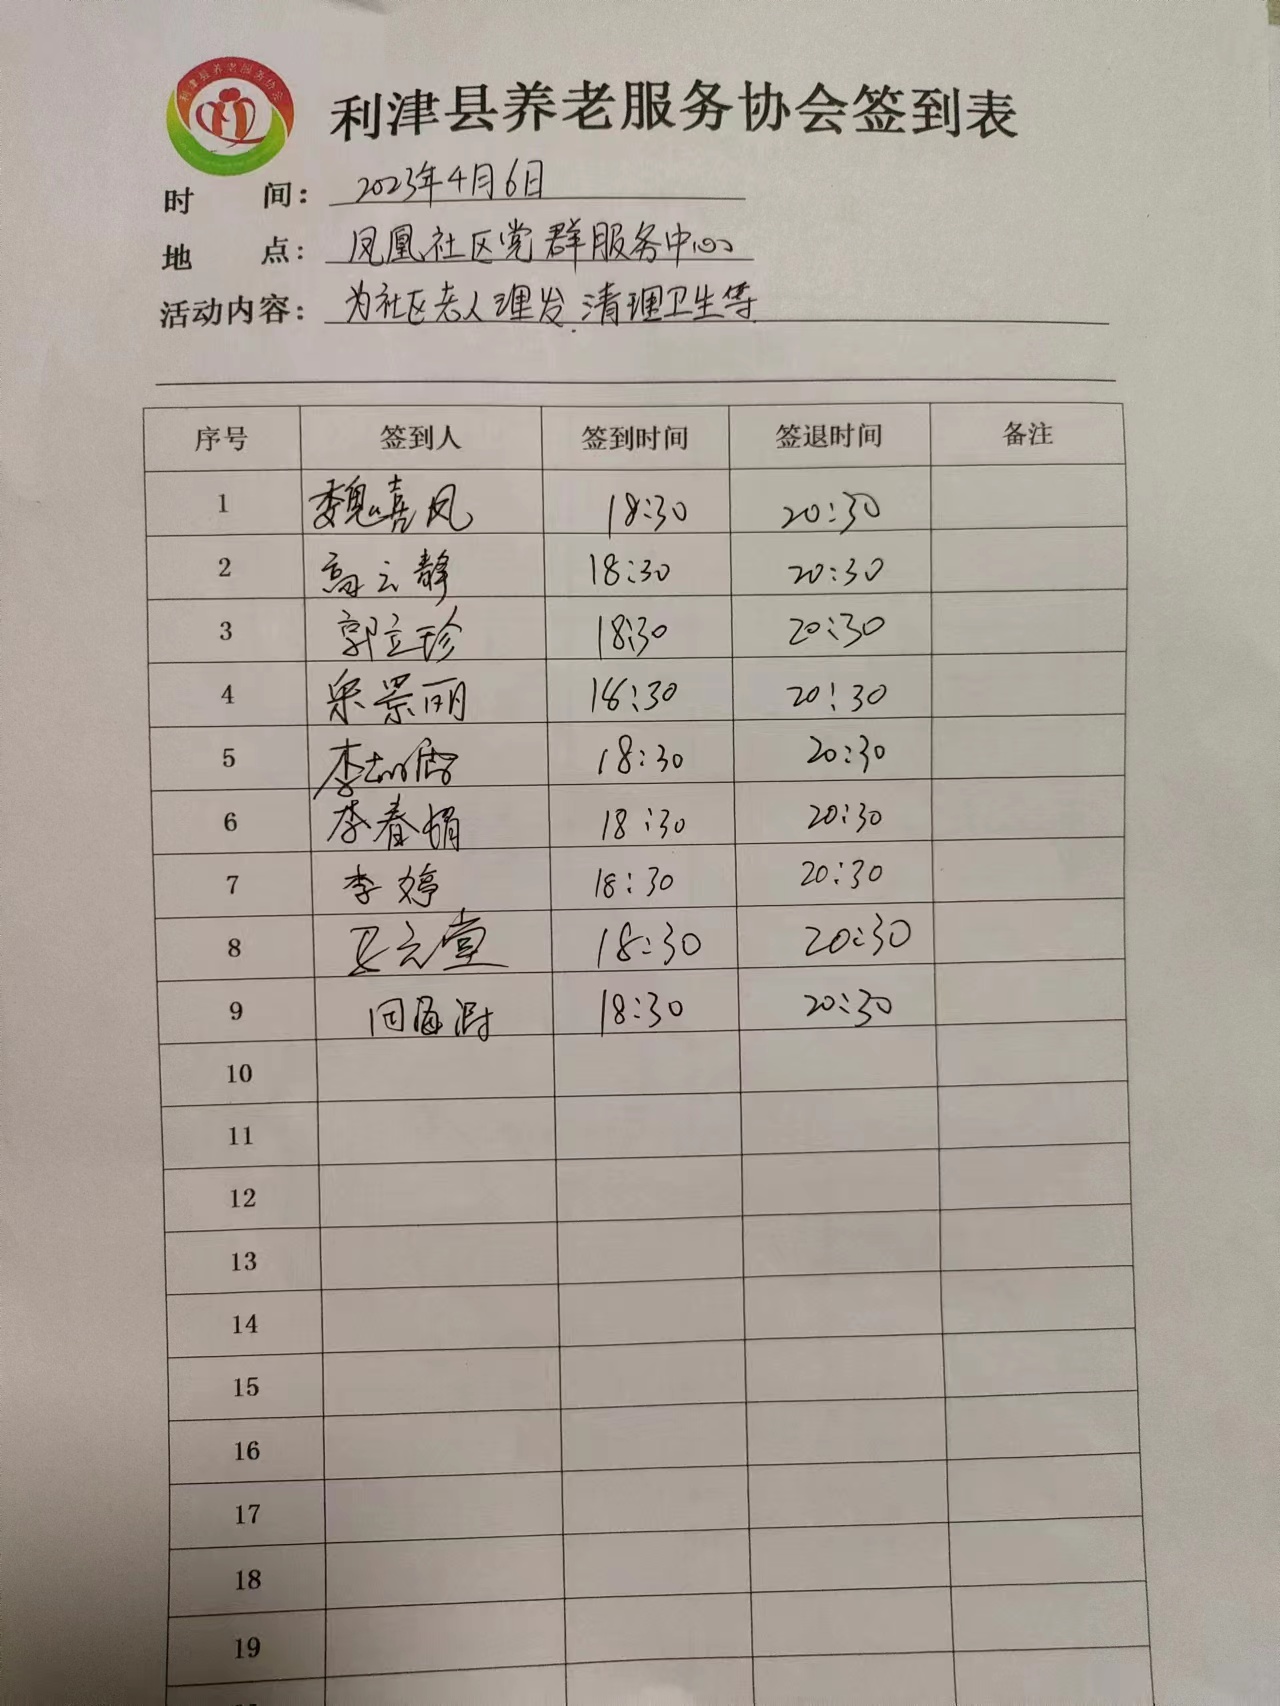 利津县养老服务协会
利津县养老服务协会签到表
时 间：2023年4月6日
地 点：凤凰社区党群服务中心
活动内容：为社区老人理发.清理卫生等
序号 签到人 签到时间 签退时间 备注
1 魏喜凤 18:30 20:30
2 高云静 18:30 20:30
3 郭立珍 18:30 20:30
4 景丽 18:30 20:30
5 李 18:30 20:30
6 李春娟 18:30 20:30
7 李婷 18:30 20:30
8 王元堂 18:30 20:30
9 18:30 20:30
10
11
12
13
14
15
16
17
18
19